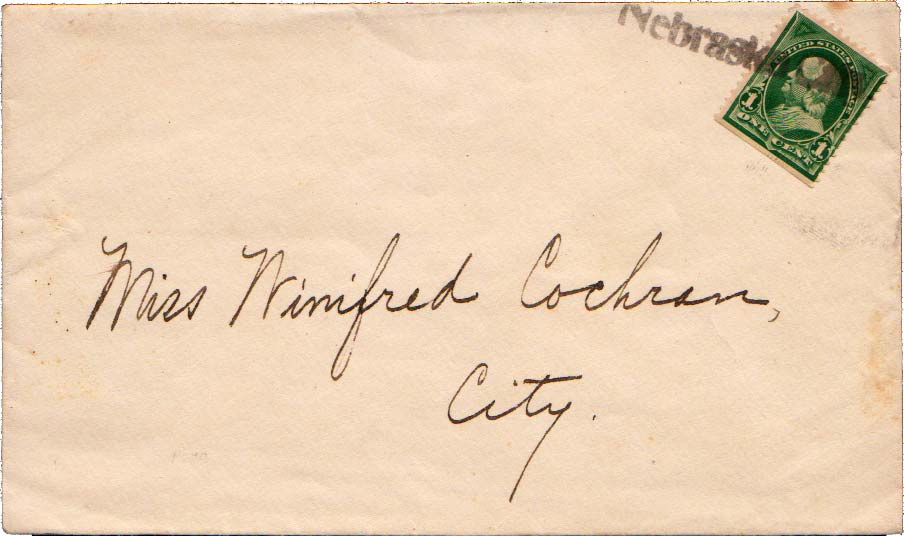 Nebraska
UNITED STATES POSTAGE
1 1
ONE CENT
Miss Winifred Cochran,
City.